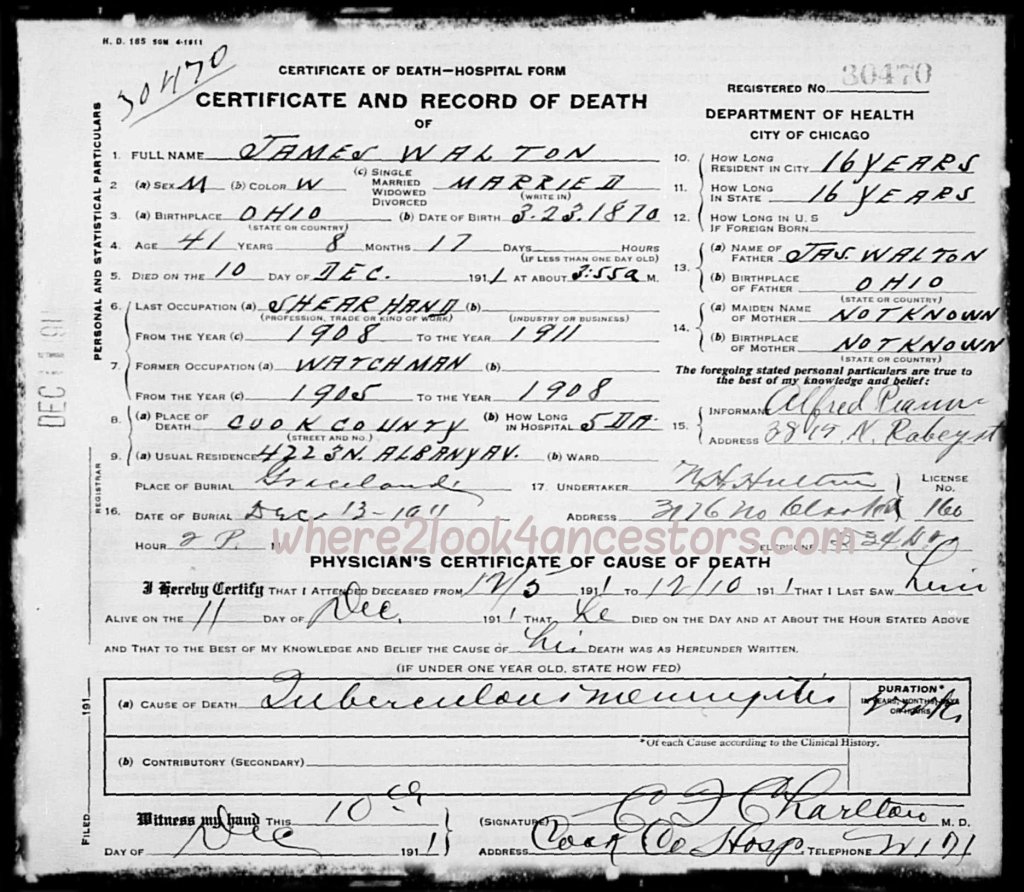 H. D. 185 50M 4-1911
30470
CERTIFICATE OF DEATH—HOSPITAL FORM
30470
REGISTERED No.
CERTIFICATE AND RECORD OF DEATH
OF
DEPARTMENT OF HEALTH
CITY OF CHICAGO
PERSONAL AND STATISTICAL PARTICULARS
1. FULL NAME JAMES WALTON
2 (a) SEX M (b) COLOR W (c) SINGLE MARRIED WIDOWED DIVORCED MARRIED
(WRITE IN)
3. (a) BIRTHPLACE OHIO (b) DATE OF BIRTH 3.23.1870
(STATE OR COUNTRY)
4. AGE 41 YEARS 8 MONTHS 17 DAYS HOURS
(IF LESS THAN ONE DAY OLD)
5. DIED ON THE 10 DAY OF DEC. 1911 AT ABOUT 3:55a M.
6. LAST OCCUPATION (a) SHEAR HAND (b)
(PROFESSION, TRADE OR KIND OF WORK) (INDUSTRY OR BUSINESS)
FROM THE YEAR (c) 1908 TO THE YEAR 1911
7. FORMER OCCUPATION (a) WATCHMAN (b)
FROM THE YEAR (c) 1905 TO THE YEAR 1908
8. (a) PLACE OF DEATH COOK COUNTY (b) HOW LONG IN HOSPITAL 5 DA.
(STREET AND NO.)
9. (a) USUAL RESIDENCE 4223 N. ALBANY AV. (b) WARD
10. HOW LONG RESIDENT IN CITY 16 YEARS
11. HOW LONG IN STATE 16 YEARS
12. HOW LONG IN U. S IF FOREIGN BORN
13. (a) NAME OF FATHER JAS. WALTON
(b) BIRTHPLACE OF FATHER OHIO
(STATE OR COUNTRY)
14. (a) MAIDEN NAME OF MOTHER NOT KNOWN
(b) BIRTHPLACE OF MOTHER NOT KNOWN
(STATE OR COUNTRY)
The foregoing stated personal particulars are true to
the best of my knowledge and belief:
15. INFORMANT Alfred
ADDRESS N. Robey st
DEC 11 1911
REGISTRAR
PLACE OF BURIAL Graceland
17. UNDERTAKER N.H. LICENSE No. 160
16. DATE OF BURIAL Dec 13-1911 ADDRESS No Clark
HOUR 2 P. M TELEPHONE
where2look4ancestors.com
PHYSICIAN'S CERTIFICATE OF CAUSE OF DEATH
I Hereby Certify THAT I ATTENDED DECEASED FROM 12/5 1911 TO 12/10 1911 THAT I LAST SAW him
ALIVE ON THE 11 DAY OF Dec. 1911 THAT he DIED ON THE DAY AND AT ABOUT THE HOUR STATED ABOVE
AND THAT TO THE BEST OF MY KNOWLEDGE AND BELIEF THE CAUSE OF his DEATH WAS AS HEREUNDER WRITTEN.
(IF UNDER ONE YEAR OLD, STATE HOW FED)
(a) CAUSE OF DEATH Tuberculous meningitis
DURATION*
IN YEARS, MONTHS, DAYS OR HOURS
*Of each Cause according to the Clinical History.
(b) CONTRIBUTORY (SECONDARY)
FILED 191
Witness my hand THIS 10th (SIGNATURE) Charlton M. D.
DAY OF Dec 1911 ADDRESS Cook Co Hosp. TELEPHONE